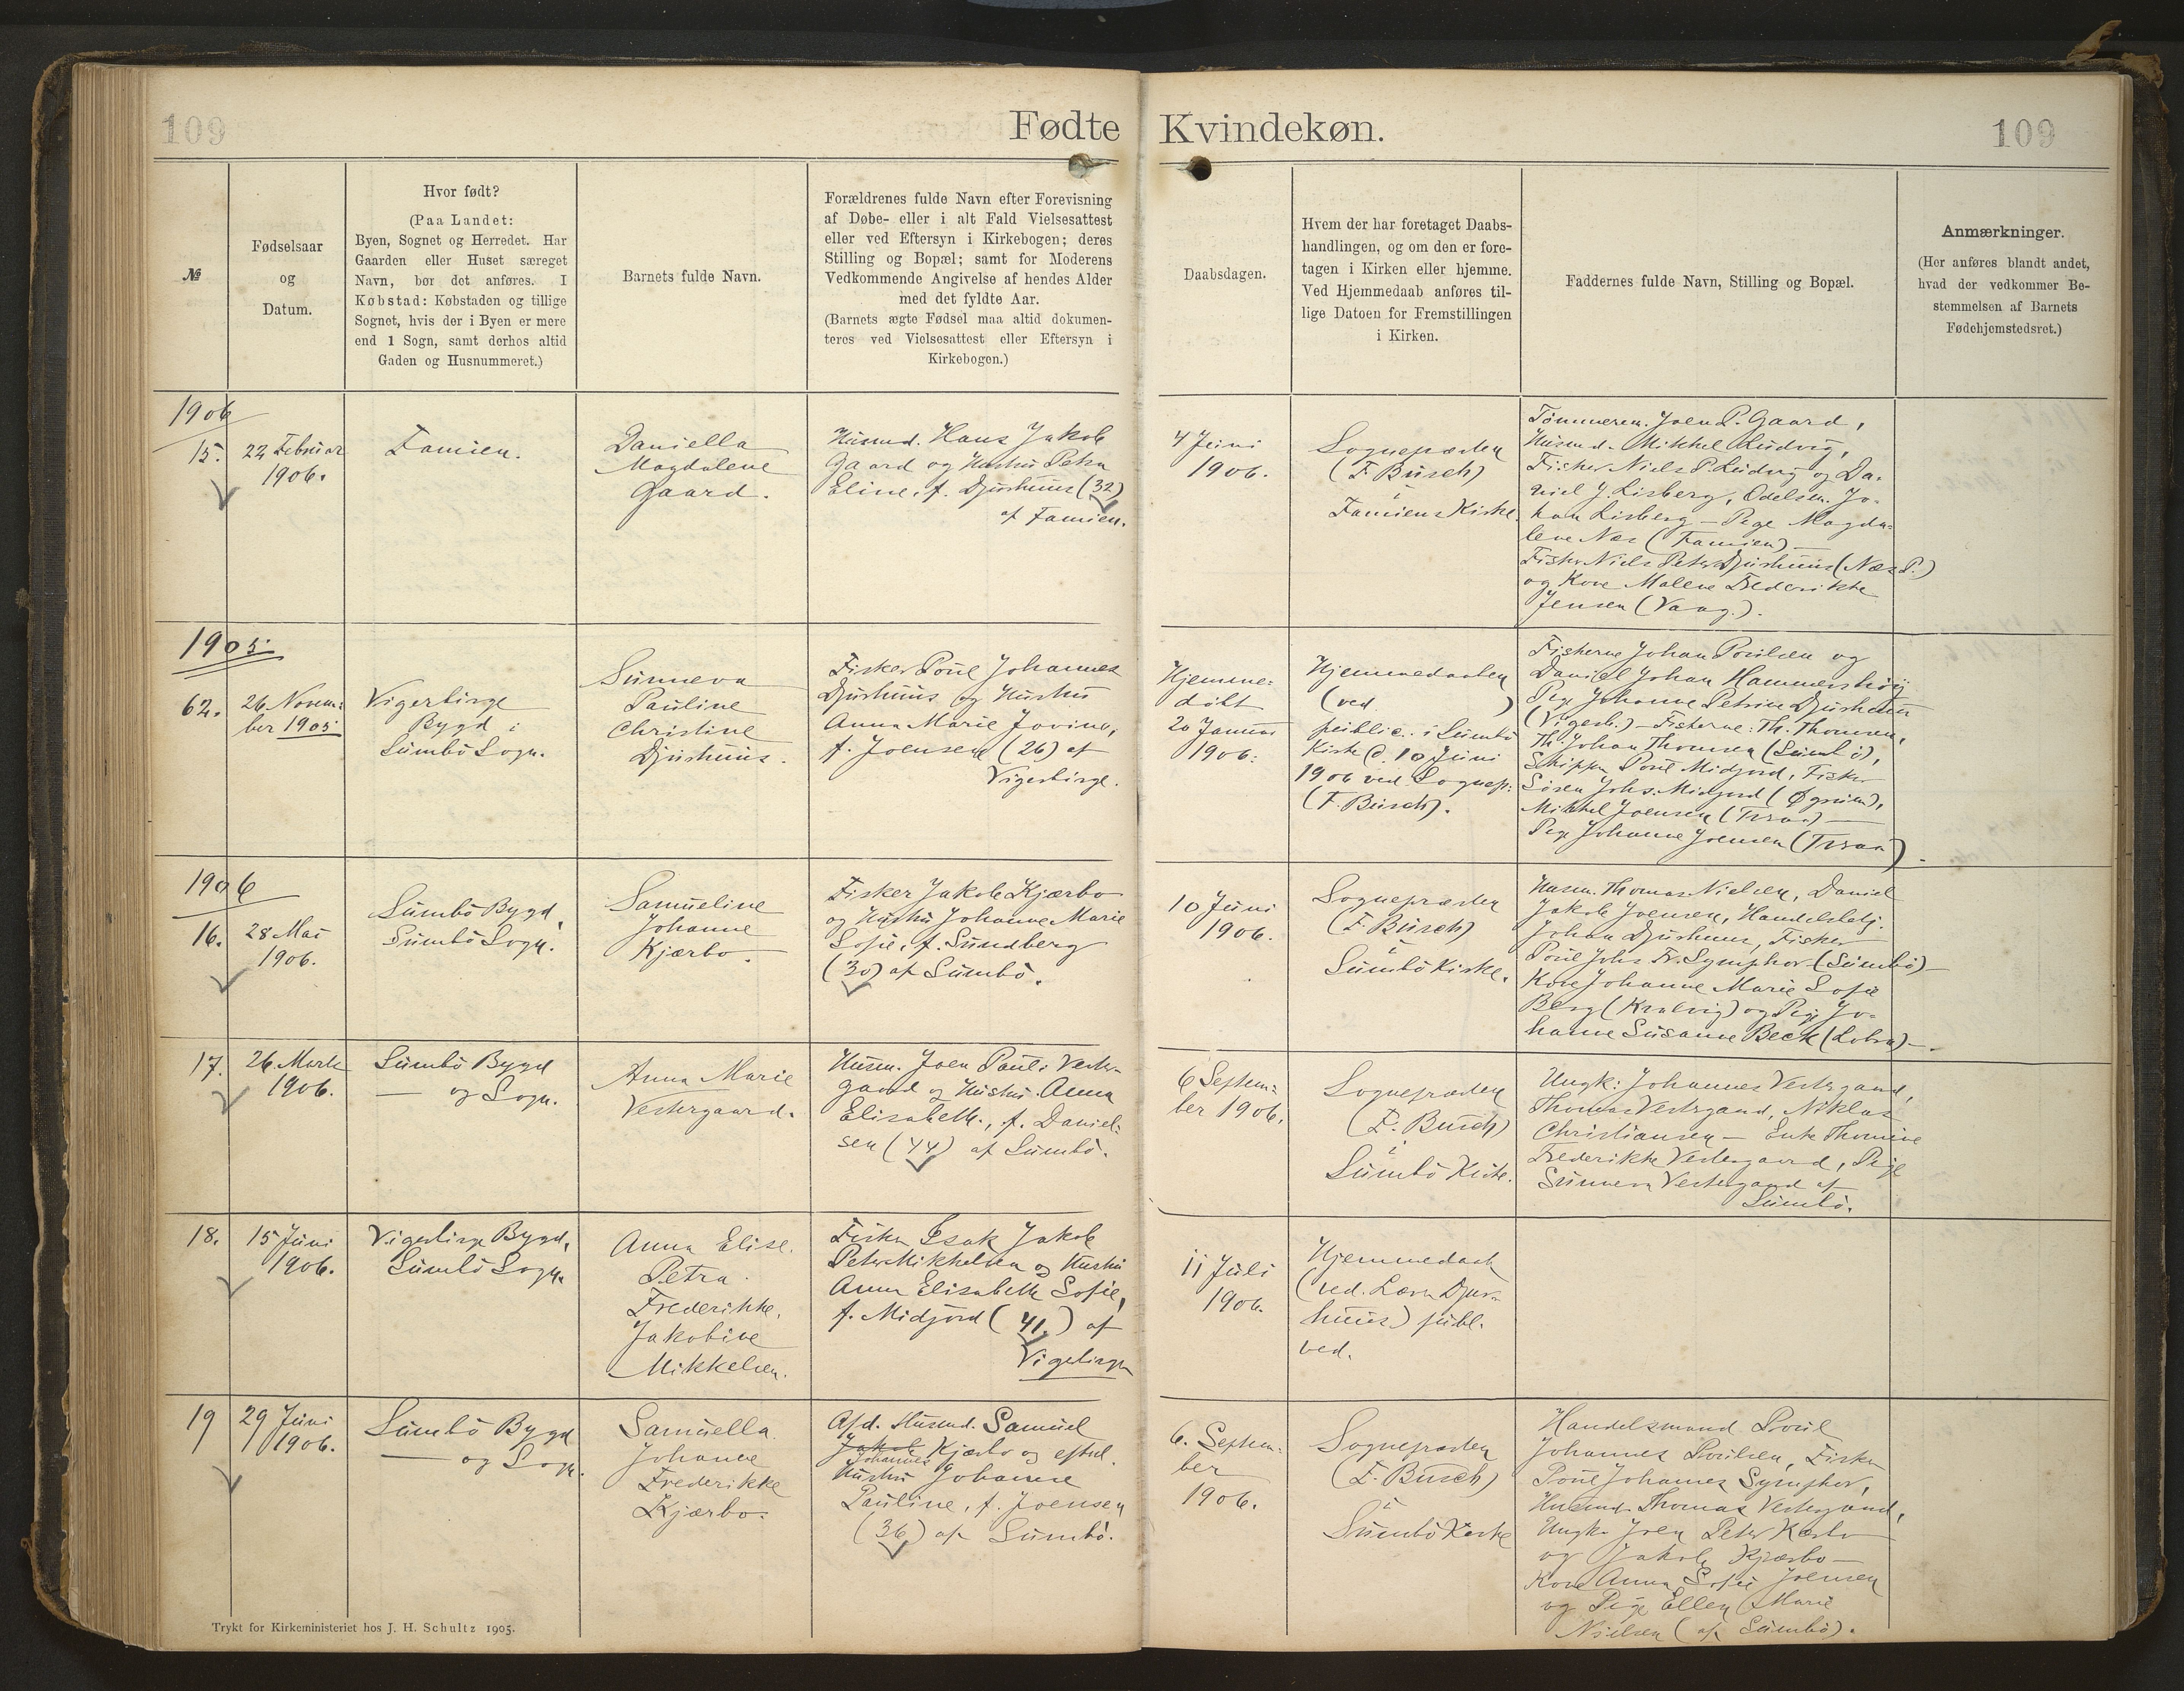 109
Fødte
Kvindekøn.
109
№
Fødselsaar
og
Datum.
Hvor født?
(Paa Landet:
Byen, Sognet og Herredet. Har
Gaarden eller Huset særeget
Navn, bør det anføres. I
Købstad: Købstaden og tillige
Sognet, hvis der i Byen er mere
end 1 Sogn, samt derhos altid
Gaden og Husnummeret.)
Barnets fulde Navn.
Forældrenes fulde Navn efter Forevisning
af Døbe- eller i alt Fald Vielsesattest
eller ved Eftersyn i Kirkebogen; deres
Stilling og Bopæl; samt for Moderens
Vedkommende Angivelse af hendes Alder
med det fyldte Aar.
(Barnets ægte Fødsel maa altid dokumen-
teres ved Vielsesattest eller Eftersyn i
Kirkebogen.)
Daabsdagen.
Hvem der har foretaget Daabs-
handlingen, og om den er fore-
tagen i Kirken eller hjemme.
Ved Hjemmedaab anføres til-
lige Datoen for Fremstillingen
i Kirken.
Faddernes fulde Navn, Stilling og Bopæl.
Anmærkninger.
(Her anføres blandt andet,
hvad der vedkommer Be-
stemmelsen af Barnets
Fødehjemstedsret.)
1906
15.
22 Februar
1906.
Famien.
Daniella
Magdalene
Gaard.
Husmd. Hans Jakob
Gaard og Hustru Petra
Eline, f. Djurhuus (32)
af Famien.
4 Juni
1906.
Sognepræsten
(F. Busch)
i
Famiens Kirke.
Tømmerm. Joen P. Gaard,
Husmd. Mikkel Ludvig,
Fisker Niels P. Ludvig og Da-
niel J. Lisberg, Odelsm. Jo-
han Lisberg — Pige Magda-
lene Næs (Famien) —
Fisker Niels Peter Djurhuus (Næs P.)
og Kone Malene Frederikke
Jensen (Vaag.).
1905
62.
26 Novem-
ber 1905
Vigerbirge
Bygd i
Sumbö Sogn.
Sunneva
Pauline
Christine
Djurhuus.
Fisker Poul Johannes
Djurhuus og Hustru
Anna Marie Jovine,
f. Joensen (26) af
Vigerbirge.
Hjemme-
døbt
20 Januar
1906.
Hjemmedaaben
(ved )
public. i Sumbö
Kirke d. 10 Juni
1906 ved Sognep.
(F. Busch).
Fiskerne Johan Poulsen og
Daniel Johan Hammershöj
Pige Johanne Petrine Djurhuus
(Vigerb.) — Fiskerne: Th. Thomsen,
Th. Johan Thomsen (Sumbö),
Skipper Poul Midjord, Fisker
Sören Johs. Midjord (
Mikkel Joensen (
Pige Johanne Joensen (
1906
16.
28 Mai
1906.
Sumbö Bygd,
Sumbö Sogn.
Samueline
Johanne
Kjærbo.
Fisker Jakob Kjærbo
og Hustru Johanne Marie
Sofie, f. Sundberg
(30) af Sumbö.
10 Juni
1906.
Sognepræsten
(F. Busch)
i
Sumbö Kirke.
Husm. Thomas Nielsen, Daniel
Jakob Joensen, Handelsbetj.
Johan Djurhuus, Fisker
Poul Johs Fr. Symphor (Sumbö) —
Kone Johanne Marie Sofie
Berg (Kvalvig) og Pige Jo-
hanne Susanne Beck (Lobra) —.
17.
26 Marts
1906.
Sumbö Bygd
— og Sogn.
Anna Marie
Vestergaard.
Husm. Joen Pauli Vester-
gaard og Hustru Anna
Elisabeth, f. Daniel-
sen (44) af Sumbö.
6 Septem-
ber 1906.
Sognepræsten
(F. Busch)
i
Sumbö Kirke.
Ungk: Johannes Vestergaard,
Thomas Vestergaard, Niklas
Christiansen — Enke Thomine
Frederikke Vestergaard, Pige
Sunneva Vestergaard af
Sumbö.
18.
15 Juni
1906.
Vigerbirge Bygd,
Sumbö Sogn.
Anna Elise
Petra
Frederikke
Jakobine
Mikkelsen.
Fisker Isak Jakob
Peter Mikkelsen og Hustru
Anna Elisabeth Sofie,
f. Midjord (41.) af
Vigerbirge
11 Juli
1906.
Hjemmedøbt
(ved. Lærer Djur-
huus) publ.
ved.
19
29 Juni
1906.
Sumbö Bygd
— og Sogn.
Samuella
Johanne
Frederikke
Kjærbo.
Afd. Husmd. Samuel
Jakob Kjærbo og efterl.
Johannes
Hustru Johanne
Pauline, f. Joensen
(36) af Sumbö.
6. Septem-
ber
1906.
Sognepræsten
(F. Busch)
i
Sumbö Kirke
Handelsmand Poul
Johannes Poulsen, Fisker
Poul Johannes Symphor,
Husmd. Thomas Vestergaard,
Ungk. Joen Peter Kærbo
og Jakob Kjærbo —
Kone Anna Sofie Joensen
og Pige Ellen Marie
Nielsen (af Sumbö).
Trykt for Kirkeministeriet hos J. H. Schultz 1905.